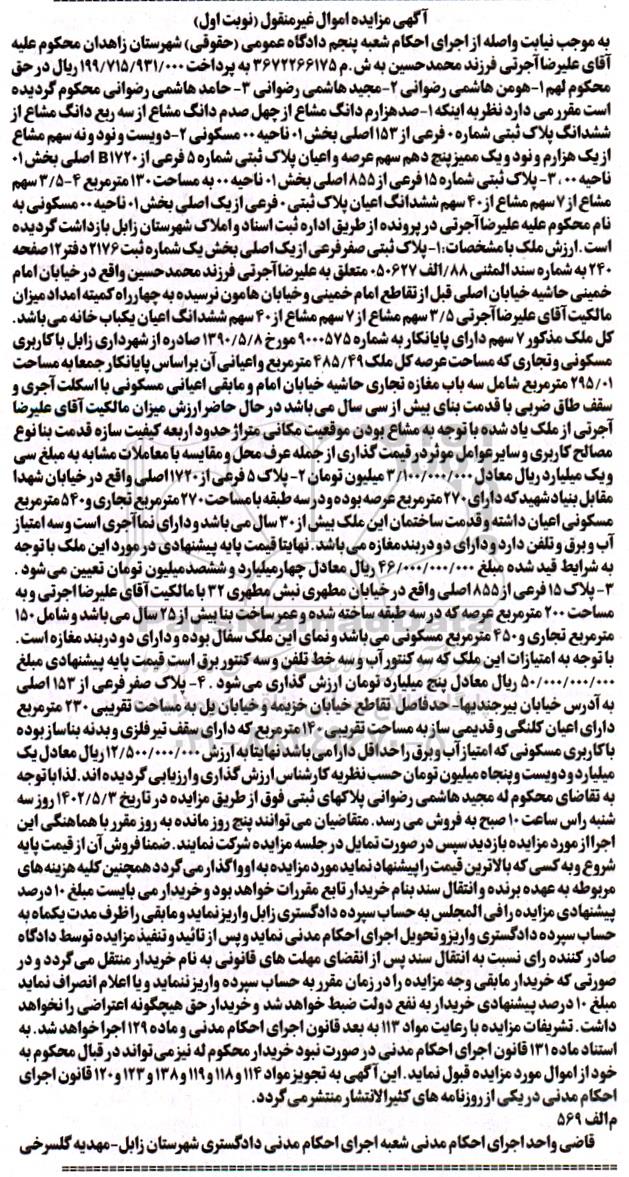 آگهی مزایده اموال غیرمنقول (نوبت اول)
به موجب نیابت واصله از اجرای احکام شعبه پنجم دادگاه عمومی (حقوقی) شهرستان زاهدان محکوم علیه
آقای علیرضا آجرتی فرزند محمدحسین به ش.م ۳۶۷۲۲۶۶۱۷۵ به پرداخت ۱۹۹/۷۱۵/۹۳۱/۰۰۰ ریال در حق
محکوم لهم ۱-هومن هاشمی رضوانی ۲-مجید هاشمی رضوانی ۳- حامد هاشمی رضوانی محکوم گردیده
است مقرر می دارد نظر به اینکه ۱-صدهزارم دانگ مشاع از چهل صدم دانگ مشاع از سه ربع دانگ مشاع از
ششدانگ پلاک ثبتی شماره ۰ فرعی از ۱۵۳ اصلی بخش ۰۱ ناحیه ۰۰ مسکونی ۲-دویست و نود و نه سهم مشاع
از یک هزارم و نود و یک ممیز پنج دهم سهم عرصه و اعیان پلاک ثبتی شماره ۵ فرعی از B۱۷۲۰ اصلی بخش ۰۱
ناحیه ۰۰، ۳- پلاک ثبتی شماره ۱۵ فرعی از ۸۵۵ اصلی بخش ۰۱ ناحیه ۰۰ به مساحت ۱۳۰ مترمربع ۴-۳/۵ سهم
مشاع از ۷ سهم مشاع از ۴۰ سهم ششدانگ اعیان پلاک ثبتی ۰ فرعی از یک اصلی بخش ۰۱ ناحیه ۰۰ مسکونی به
نام محکوم علیه علیرضا آجرتی در پرونده از طریق اداره ثبت اسناد و املاک شهرستان زابل بازداشت گردیده
است. ارزش ملک با مشخصات: ۱-پلاک ثبتی صفر فرعی از یک اصلی بخش یک شماره ثبت ۲۱۷۶ دفتر ۱۲ صفحه
۲۴۰ به شماره سند المثنی ۸۸/الف ۰۵۰۶۲۷ متعلق به علیرضا آجرتی فرزند محمدحسین واقع در خیابان امام
خمینی حاشیه خیابان اصلی قبل از تقاطع امام خمینی و خیابان هامون نرسیده به چهارراه کمیته امداد میزان
مالکیت آقای علیرضا آجرتی ۳/۵ سهم مشاع از ۷ سهم مشاع از ۴۰ سهم ششدانگ اعیان یکباب خانه می باشد.
کل ملک مذکور ۷ سهم دارای پایانکار به شماره ۹۰۰۰۵۷۵ مورخ ۱۳۹۰/۵/۸ صادره از شهرداری زابل با کاربری
مسکونی و تجاری که مساحت عرصه کل ملک ۴۸۵/۴۹ مترمربع و اعیانی آن براساس پایانکار جمعا به مساحت
۲۹۵/۰۱ مترمربع شامل سه باب مغازه تجاری حاشیه خیابان امام و مابقی اعیانی مسکونی با اسکلت آجری و
سقف طاق ضربی با قدمت بنای بیش از سی سال می باشد در حال حاضر ارزش میزان مالکیت آقای علیرضا
آجرتی از ملک یاد شده با توجه به مشاع بودن موقعیت مکانی متراژ حدود اربعه کیفیت سازه قدمت بنا نوع
مصالح کاربری و سایر عوامل موثر در قیمت گذاری از جمله عرف محل و مقایسه با معاملات مشابه به مبلغ سی
و یک میلیارد ریال معادل ۳/۱۰۰/۰۰۰/۰۰۰ میلیون تومان ۲- پلاک ۵ فرعی از ۱۷۲۰ اصلی واقع در خیابان شهدا
مقابل بنیاد شهید که دارای ۲۷۰ مترمربع عرصه بوده و در سه طبقه با مساحت ۲۷۰ مترمربع تجاری و ۵۴۰ مترمربع
مسکونی اعیان داشته و قدمت ساختمان این ملک بیش از ۳۰ سال می باشد و دارای نما آجری است و سه امتیاز
آب و برق و تلفن دارد و دارای دو دربند مغازه می باشد. نهایتا قیمت پایه پیشنهادی در مورد این ملک با توجه
به شرایط قید شده مبلغ ۴۶/۰۰۰/۰۰۰/۰۰۰ ریال معادل چهار میلیارد و ششصد میلیون تومان تعیین می شود.
۳- پلاک ۱۵ فرعی از ۸۵۵ اصلی واقع در خیابان مطهری نبش مطهری ۳۲ با مالکیت آقای علیرضا اجرتی و به
مساحت ۲۰۰ مترمربع عرصه که در سه طبقه ساخته شده و عمر ساخت بنا بیش از ۲۵ سال می باشد و شامل ۱۵۰
مترمربع تجاری و ۴۵۰ مترمربع مسکونی می باشد و نمای این ملک سفال بوده و دارای دو دربند مغازه است.
با توجه به امتیازات این ملک که سه کنتور آب و سه خط تلفن و سه کنتور برق است قیمت پایه پیشنهادی مبلغ
۵۰/۰۰۰/۰۰۰/۰۰۰ ریال معادل پنج میلیارد تومان ارزش گذاری می شود. ۴- پلاک صفر فرعی از ۱۵۳ اصلی
به آدرس خیابان بیرجندیها- حدفاصل تقاطع خیابان خزیمه و خیابان یل به مساحت تقریبی ۲۳۰ مترمربع
دارای اعیان کلنگی و قدیمی ساز به مساحت تقریبی ۱۴۰ مترمربع که دارای سقف تیر فلزی و بدنه بناساز بوده
با کاربری مسکونی که امتیاز آب و برق را حداقل دارا می باشد نهایتا به ارزش ۱۲/۵۰۰/۰۰۰/۰۰۰ ریال معادل یک
میلیارد و دویست و پنجاه میلیون تومان حسب نظریه کارشناس ارزش گذاری و ارزیابی گردیده اند. لذا با توجه
به تقاضای محکوم له مجید هاشمی رضوانی پلاکهای ثبتی فوق از طریق مزایده در تاریخ ۱۴۰۲/۵/۳ روز سه
شنبه راس ساعت ۱۰ صبح به فروش می رسد. متقاضیان می توانند پنج روز مانده به روز مقرر با هماهنگی این
اجرا از مورد مزایده بازدید سپس در صورت تمایل در جلسه مزایده شرکت نمایند. ضمنا فروش آن از قیمت پایه
شروع و به کسی که بالاترین قیمت را پیشنهاد نماید مورد مزایده به او واگذار می گردد همچنین کلیه هزینه های
مربوطه به عهده برنده و انتقال سند بنام خریدار تابع مقررات خواهد بود و خریدار می بایست مبلغ ۱۰ درصد
پیشنهادی مزایده را فی المجلس به حساب سپرده دادگستری زابل واریز نماید و مابقی را ظرف مدت یکماه به
حساب سپرده دادگستری واریز و تحویل اجرای احکام مدنی نماید و پس از تائید و تنفیذ مزایده توسط دادگاه
صادر کننده رای نسبت به انتقال سند پس از انقضای مهلت های قانونی به نام خریدار منتقل می گردد و در
صورتی که خریدار مابقی وجه مزایده را در زمان مقرر به حساب سپرده واریز ننماید و یا اعلام انصراف نماید
مبلغ ۱۰ درصد پیشنهادی خریدار به نفع دولت ضبط خواهد شد و خریدار حق هیچگونه اعتراضی را نخواهد
داشت. تشریفات مزایده با رعایت مواد ۱۱۳ به بعد قانون اجرای احکام مدنی و ماده ۱۲۹ اجرا خواهد شد. به
استناد ماده ۱۳۱ قانون اجرای احکام مدنی در صورت نبود خریدار محکوم له نیز می تواند در قبال محکوم به
خود از اموال مورد مزایده قبول نماید. این آگهی به تجویز مواد ۱۱۴ و ۱۱۸ و ۱۱۹ و ۱۳۸ و ۱۲۳ و ۱۲۰ قانون اجرای
احکام مدنی در یکی از روزنامه های کثیرالانتشار منتشر می گردد.
م الف ۵۶۹
قاضی واحد اجرای احکام مدنی شعبه اجرای احکام مدنی دادگستری شهرستان زابل-مهدیه گلسرخی